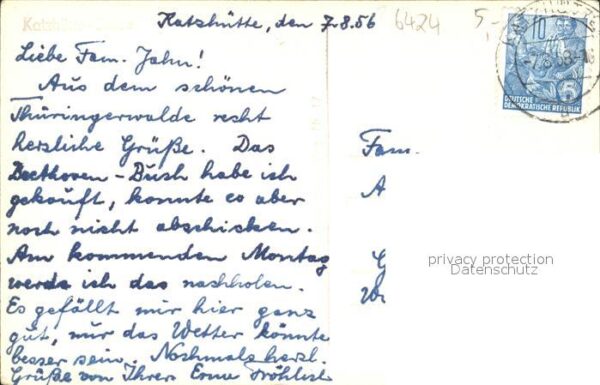 Katzhütte, den 7.8.56
6424
5,-
Liebe Fam. Jahn!
Aus dem schönen
Thüringerwalde recht
herzliche Grüße. Das
Beethoven-Buch habe ich
gekauft, konnte es aber
noch nicht abschicken.
Am kommenden Montag
werde ich das nachholen.
Es gefällt mir hier ganz
gut, nur das Wetter könnte
besser sein. Nochmals herzl.
Grüße von Ihrer Erna
10
5
DEUTSCHE
DEMOKRATISCHE REPUBLIK
Fam.
A
G
privacy protection
Datenschutz